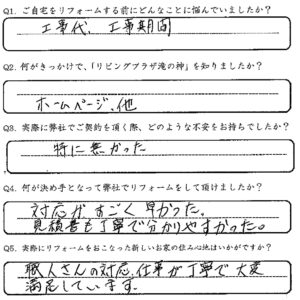 Q1. ご自宅をリフォームする前にどんなことに悩んでいましたか?
工事代、工事期間
Q2. 何がきっかけで、「リビングプラザ滝の神」を知りましたか?
ホームページ、他
Q3. 実際に弊社でご契約を頂く際、どのような不安をお持ちでしたか?
特に無かった
Q4. 何が決め手となって弊社でリフォームをして頂けましたか?
対応がすごく早かった。
見積書も丁寧で分かりやすかった。
Q5. 実際にリフォームをおこなった新しいお家の住み心地はいかがですか?
職人さんの対応、仕事が丁寧で大変
満足しています。